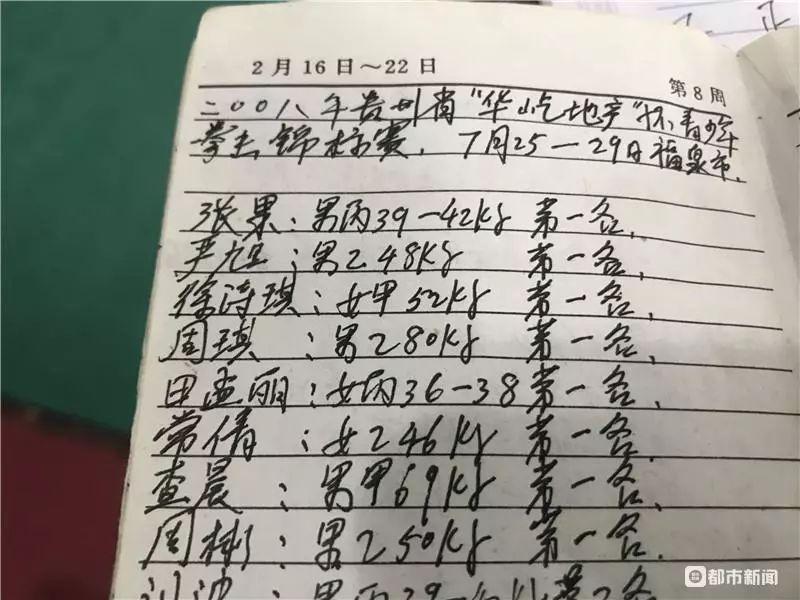 2月16日～22日
第8周
二〇〇八年贵州省"华屹地产"杯青少年
拳击锦标赛. 7月25—29日福泉市.
张果：男丙39—42kg 第一名.
尹旭：男乙48kg 第一名.
徐诗琪：女甲52kg 第一名.
周琪：男乙80kg 第一名.
田孟丽：女丙36—38第一名.
常倩：女乙46kg 第一名.
查晨：男甲69kg 第一名.
周彬：男乙50kg 第一名.
男丙39
都市新闻